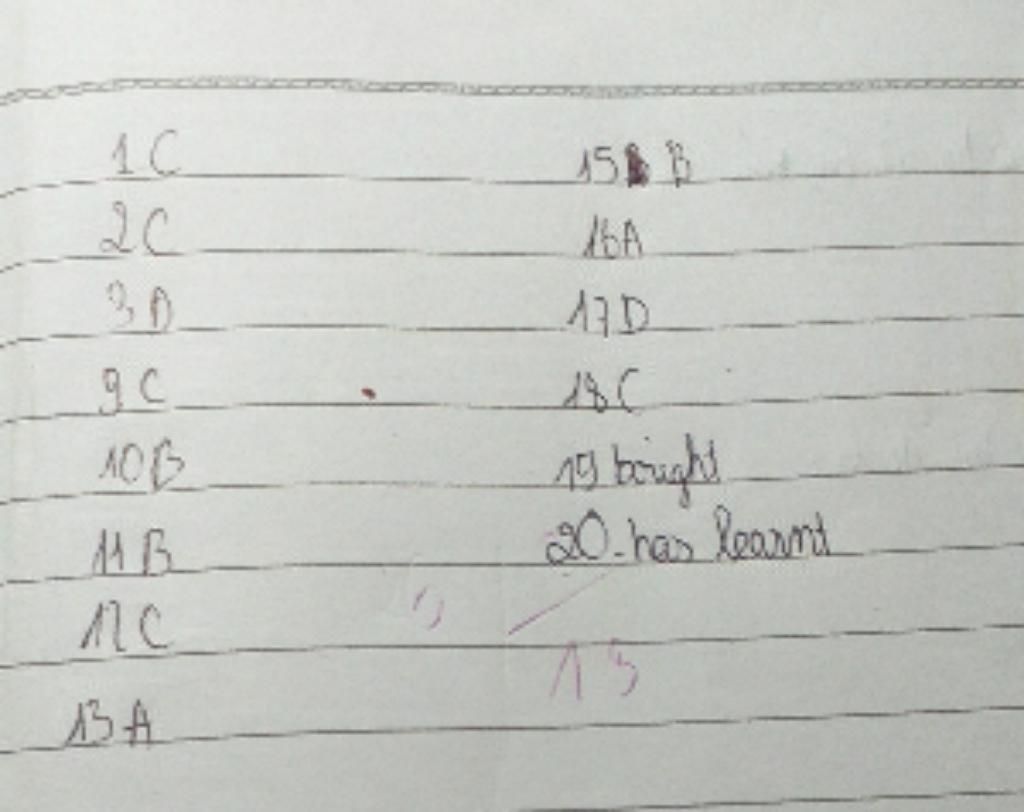 1 C
2 C
3 D
9 C
10 B
11 B
12 C
13 A
15 B
16 A
17 D
18 C
19 bought
20. has learnt
13